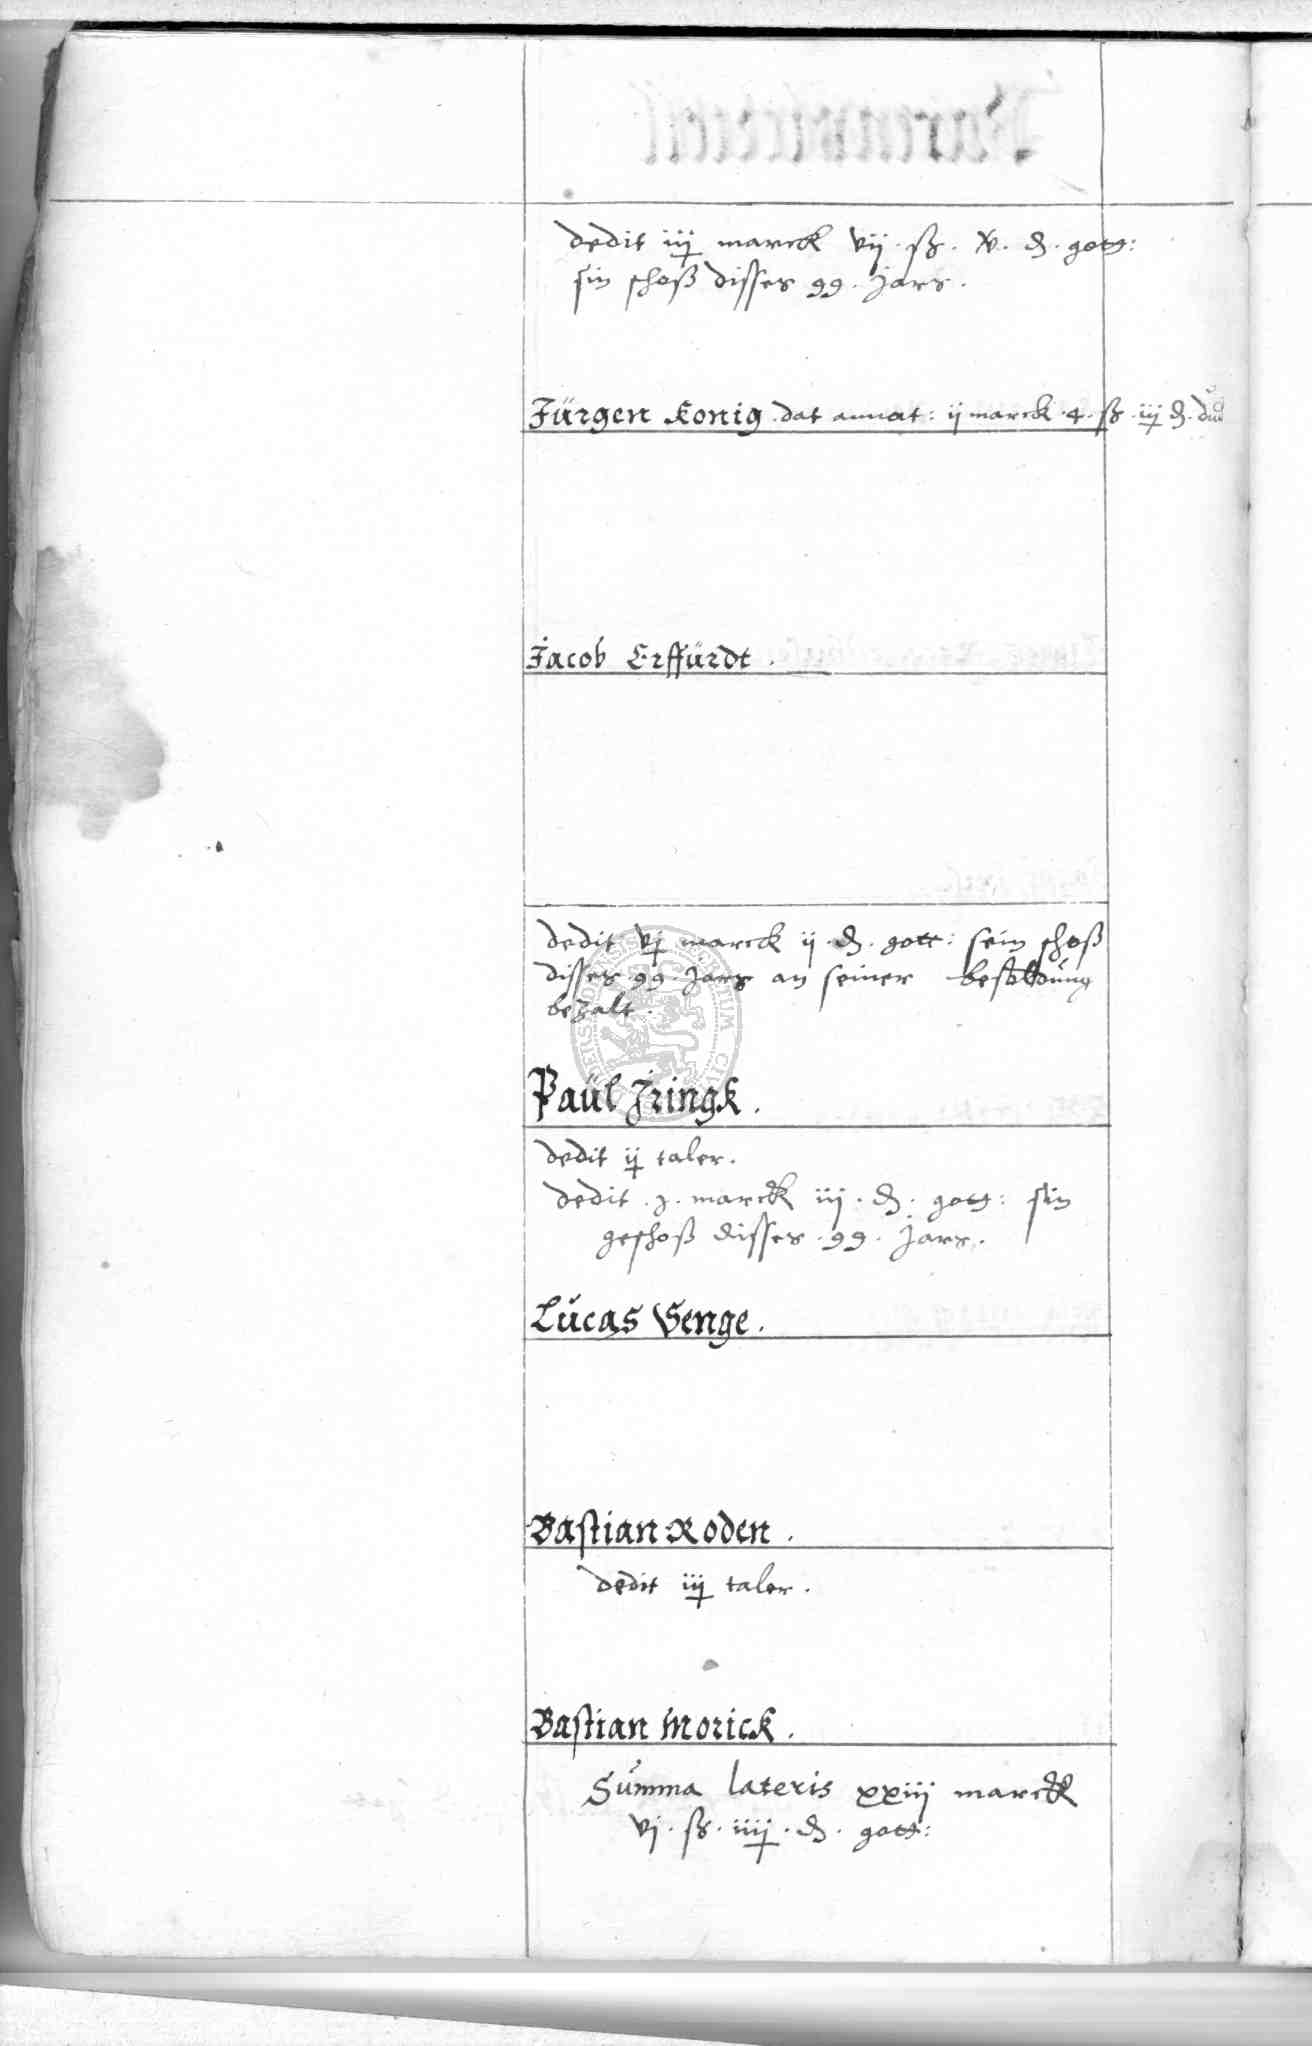 dedit iij marck vij . ß . x . ₰ . gott:
sin schoß disses 99 . jars .
Jürgen Konig . dat annat: ij marck . 4 . ß . iij ₰ .
Jacob Erffürdt .
dedit vj marck ij . ₰ . gott: sein schoß
disses 99 . jars an seiner besoldung
bezalt .
Paül Jringk .
dedit ij taler .
dedit . j . marck iij . ₰ . gott: sin
geschoß disses . 99 . jars .
Lucas Senge .
Bastian Roden .
dedit iij taler .
Bastian Morick .
Summa lateris xxiij marck
vj . ß . iiij . ₰ . gott: